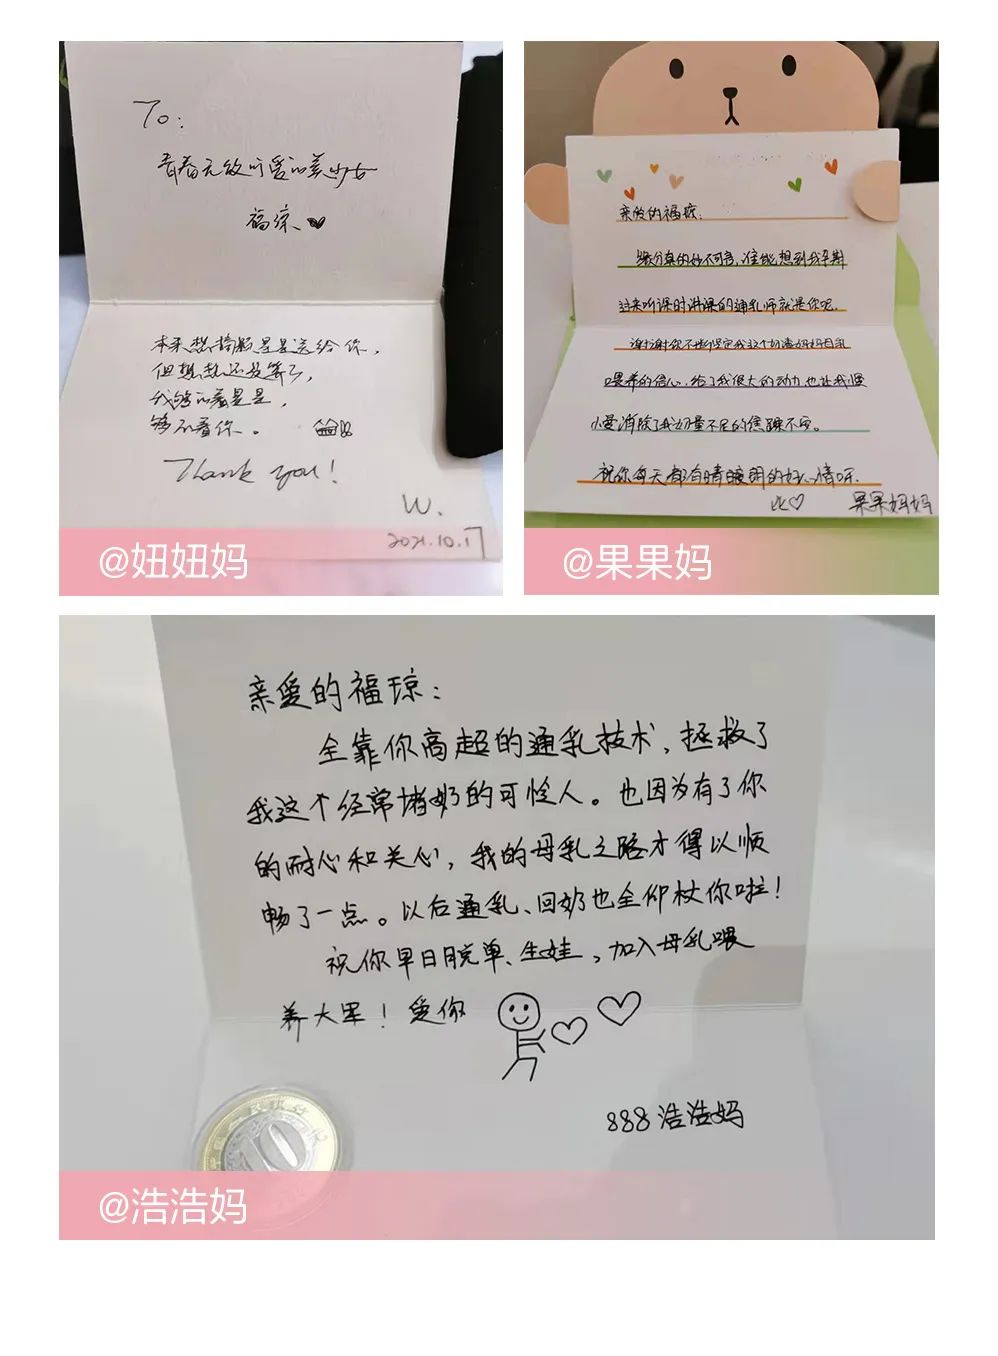 To:
青春无敌可爱的美少女
福琼
本来想摘颗星星送给你,
但想想还是算了,
我够得着星星,
够不着你。
Thank you!
W.
2021.10.17
@妞妞妈
亲爱的福琼:
缘分真的妙不可言,谁能想到我早期
过来听课时讲课的通乳师就是你呢。
谢谢你不断坚定我这个奶渣妈妈母乳
喂养的信心,给了我很大的动力也让我慢
小爱消除了我奶量不足的焦躁不安。
祝你每天都有晴暖朗的好心情呀.
比
果果妈妈
@果果妈
亲爱的福琼:
全靠你高超的通乳技术,拯救了
我这个经常堵奶的可怜人。也因为有了你
的耐心和关心,我的母乳之路才得以顺
畅了一点。以后通乳、回奶也全仰杖你啦!
祝你早日脱单、生娃,加入母乳喂
养大军!爱你
888 浩浩妈
10
@浩浩妈